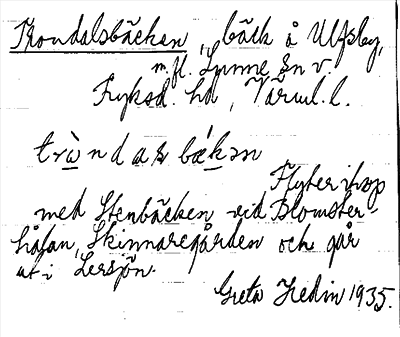 Trondalsbäcken, bäck å Ulfsby,
m. fl. Sunne sn v.
Fryksd. hd, Värml. l.
tròndas bǽkən
Flyter ihop
med Stenbäcken vid Blomster-
håfan, Skinnaregården och går
ut i Lersjön.
Greta Hedin 1935.